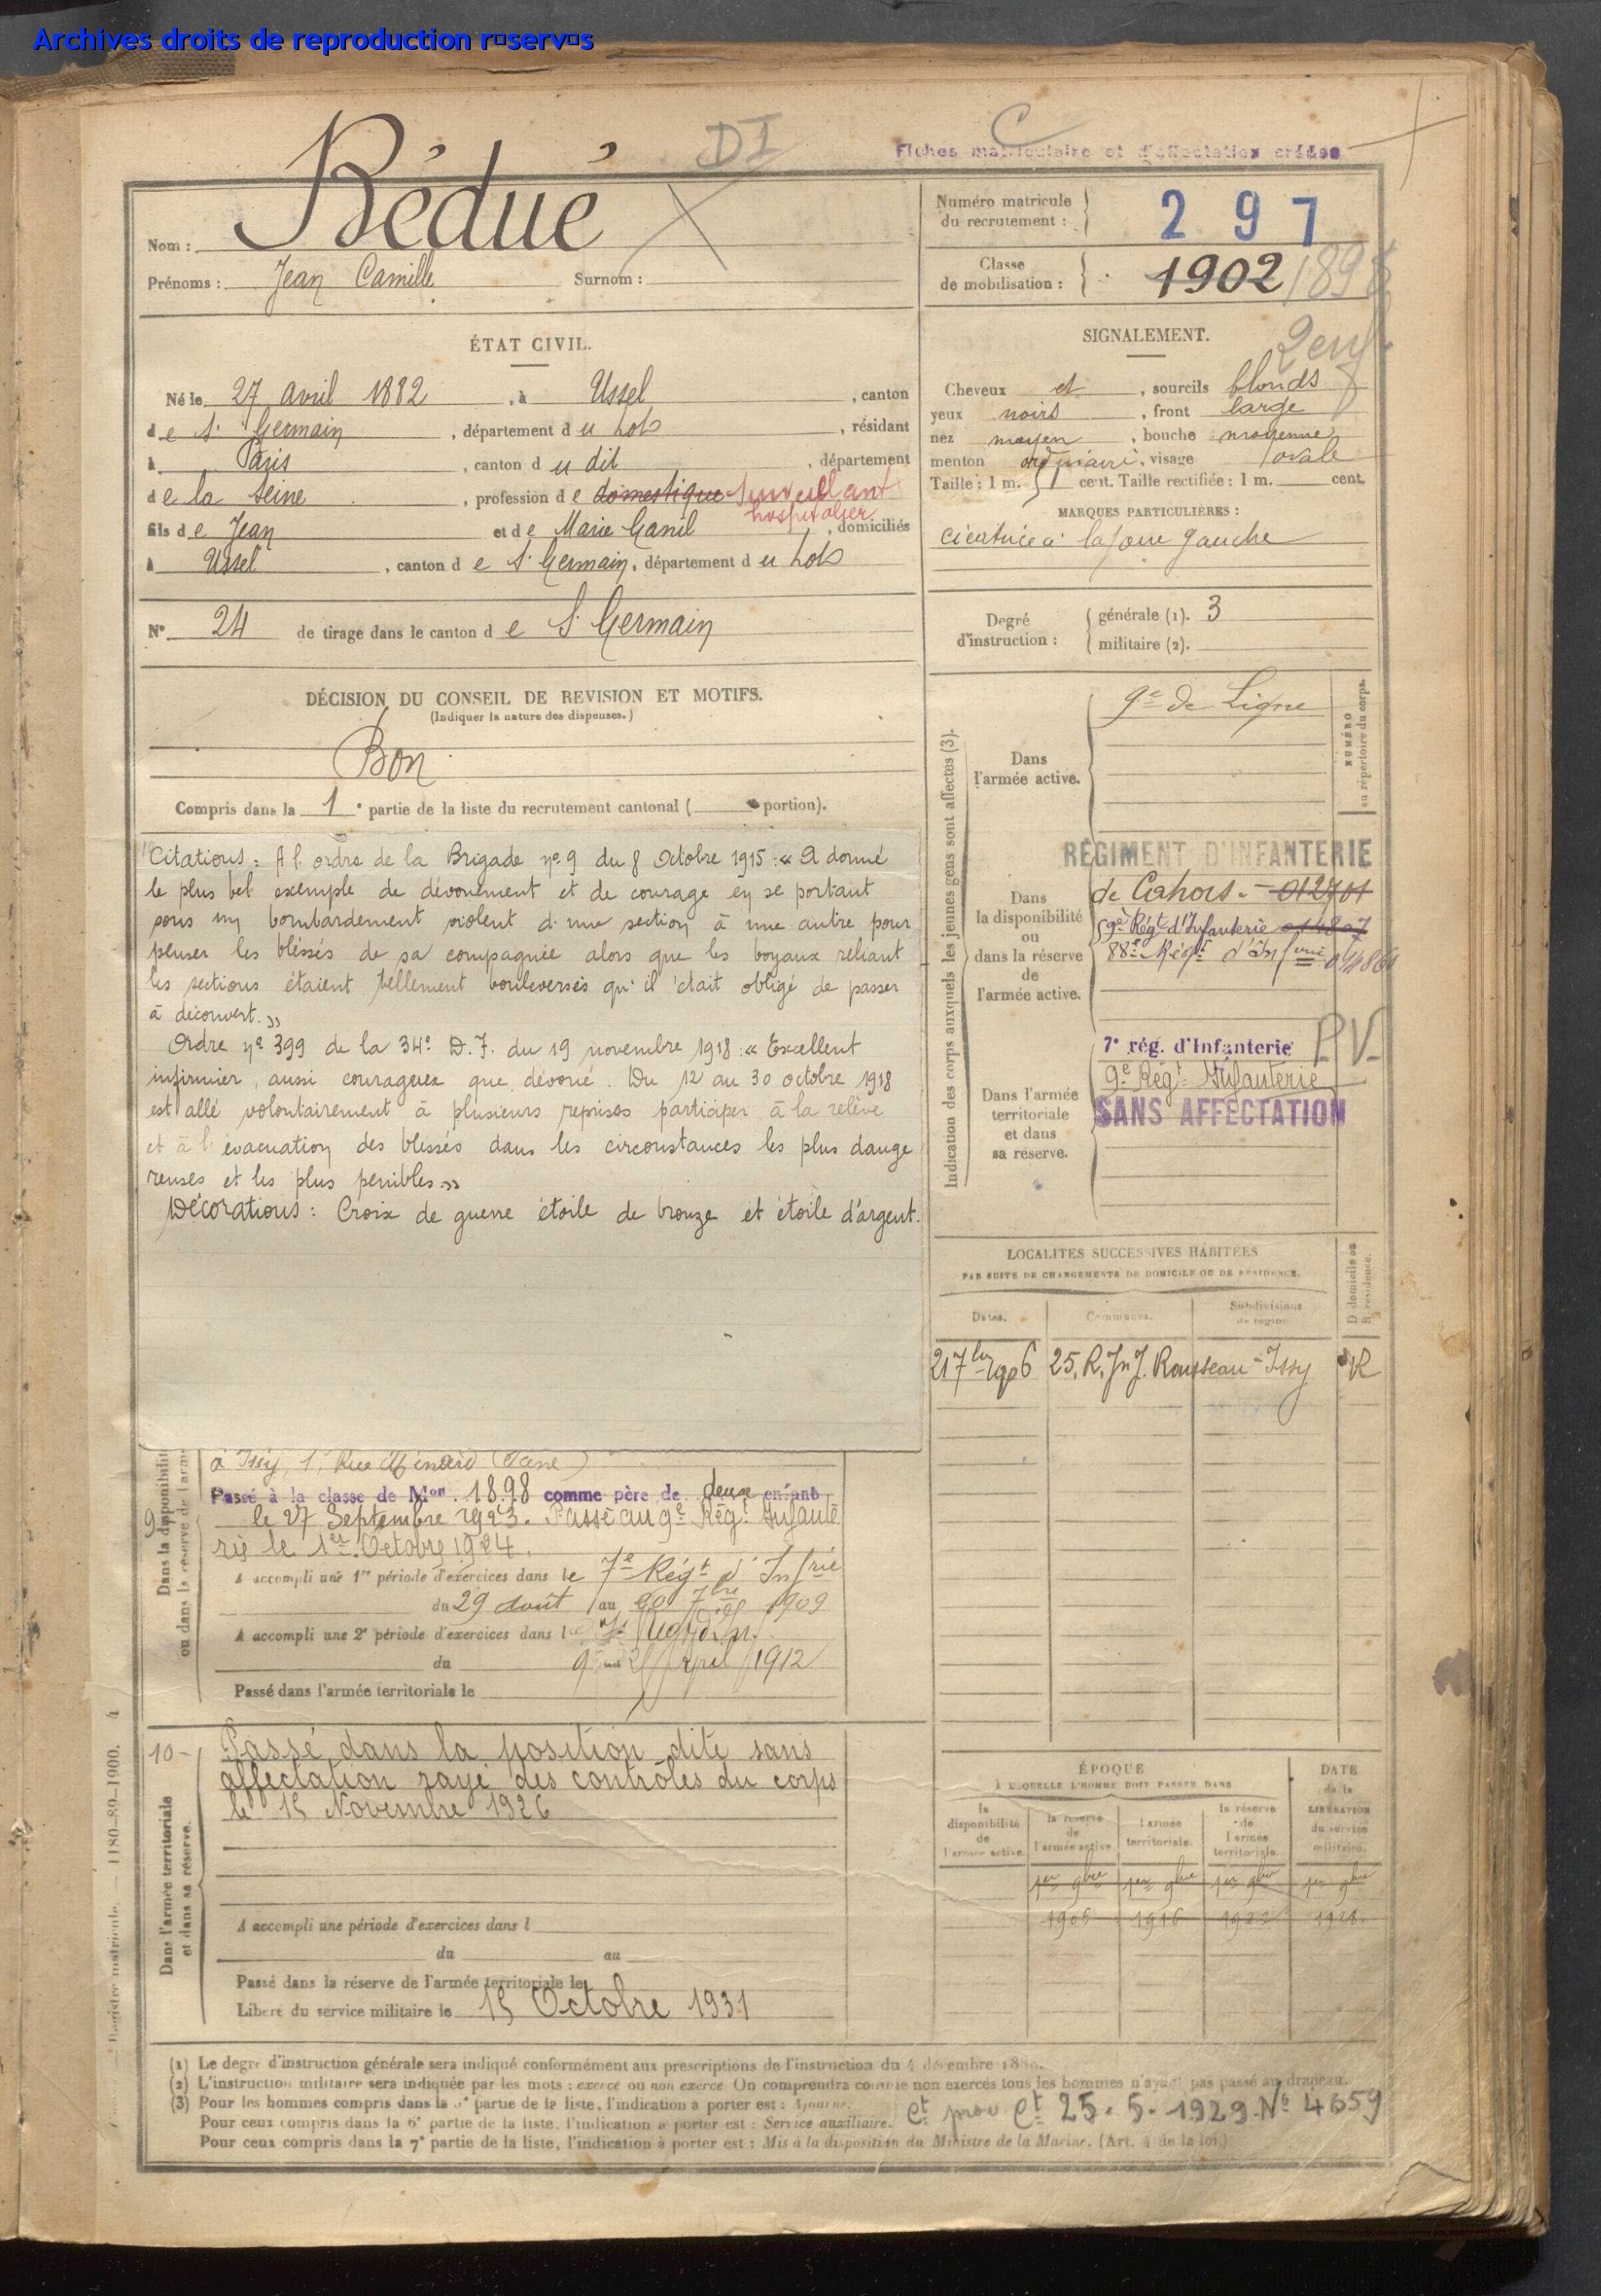 Archives droits de reproduction r□serv□s
DI
C
Fiches matriculaire et d'affectation créées
Nom : Bédué
Prénoms : Jean Camille Surnom :
Numéro matricule
du recrutement : 297
Classe
de mobilisation : 1902 1898
ÉTAT CIVIL.
Né le 27 avril 1882, à Ussel, canton
de St Germain, département du Lot, résidant
à Paris, canton du dit, département
de la Seine, profession de domestique surveillant
hospitalier
fils de Jean et de Marie Ganil, domiciliés
à Ussel, canton de St Germain, département du Lot
N° 24 de tirage dans le canton de St Germain
SIGNALEMENT.
2 enf
Cheveux et, sourcils blonds
yeux noirs, front large
nez moyen, bouche moyenne
menton ordinaire, visage ovale
Taille : 1 m. cent. Taille rectifiée : 1 m. cent.
MARQUES PARTICULIÈRES :
cicatrice à la joue gauche
Degré
d'instruction :
générale (1). 3
militaire (2).
DÉCISION DU CONSEIL DE REVISION ET MOTIFS.
(Indiquer la nature des dispenses.)
Bon
Compris dans la 1e partie de la liste du recrutement cantonal ( e portion).
Citations : A l'ordre de la Brigade n° 9 du 8 Octobre 1915 : « A donné
le plus bel exemple de dévouement et de courage en se portant
sous un bombardement violent d'une section à une autre pour
penser les blessés de sa compagnie alors que les boyaux reliant
les sections étaient tellement bouleversés qu'il était obligé de passer
à découvert. »
Ordre n° 399 de la 34e D.I. du 19 novembre 1918 : « Excellent
infirmier, aussi courageux que dévoué. Du 12 au 30 octobre 1918
est allé volontairement à plusieurs reprises participer à la relève
et à l'évacuation des blessés dans les circonstances les plus dange
reuses et les plus penibles. »
Décorations : Croix de guerre étoile de bronze et étoile d'argent.
Indication des corps auxquels les jeunes gens sont affectés (3).
Dans
l'armée active.
9e de Ligne
NUMÉRO
au répertoire du corps.
Dans
la disponibilité
ou
dans la réserve
de
l'armée active.
RÉGIMENT D'INFANTERIE
de Cahors. - 012701
59e Régt d'Infanterie
88e Régt d'Infanterie
Dans l'armée
territoriale
et dans
sa réserve.
7e rég. d'Infanterie P.V.
9e Régt Infanterie
SANS AFFECTATION
LOCALITÉS SUCCESSIVES HABITÉES
PAR SUITE DE CHANGEMENTS DE DOMICILE OU DE RÉSIDENCE.
Dates. Communes. Subdivisions
de région. D domicile ou
R résidence.
21 7bre 1906 25, R. J. J. Rousseau - Issy R
Dans la disponibilité
ou dans la réserve de l'armée
9
à Issy, 1, Rue Ménard (Seine)
Passé à la classe de Mon. 1898 comme père de deux enfant
le 27 Septembre 1923. Passé au 9e Régt Infante
rie le 1er Octobre 1924.
A accompli une 1re période d'exercices dans le 7e Régt d'Infrie
du 29 août au 20 7bre 1909
A accompli une 2e période d'exercices dans le
du 9 au 25 Avril 1912
Passé dans l'armée territoriale le
10-
Dans l'armée territoriale
et dans sa réserve.
Passé dans la position dite sans
affectation rayé des contrôles du corps
le 15 Novembre 1926
A accompli une période d'exercices dans l
du au
Passé dans la réserve de l'armée territoriale le
Libéré du service militaire le 15 Octobre 1931
ÉPOQUE
À LAQUELLE L'HOMME DOIT PASSER DANS
la
disponibilité
de
l'armée active.
la réserve
de
l'armée active
l'armée
territoriale.
la réserve
de
l'armée
territoriale.
DATE
de la
LIBÉRATION
du service
militaire.
1er 9bre 1er 9bre 1er 9bre 1er 9bre
1906 1916 1922 1928
Registre matricule. — 1180-89-1900. 4
(1) Le degré d'instruction générale sera indiqué conformément aux prescriptions de l'instruction du 4 décembre 1889.
(2) L'instruction militaire sera indiquée par les mots : exercé ou non exercé. On comprendra comme non exercés tous les hommes n'ayant pas passé au drapeau.
(3) Pour les hommes compris dans la 5e partie de la liste, l'indication à porter est : Ajourné.
Pour ceux compris dans la 6e partie de la liste, l'indication à porter est : Service auxiliaire.
Ct prov Ct 25.5.1929 N° 4659
Pour ceux compris dans la 7e partie de la liste, l'indication à porter est : Mis à la disposition du Ministre de la Marine. (Art. 4 de la loi.)